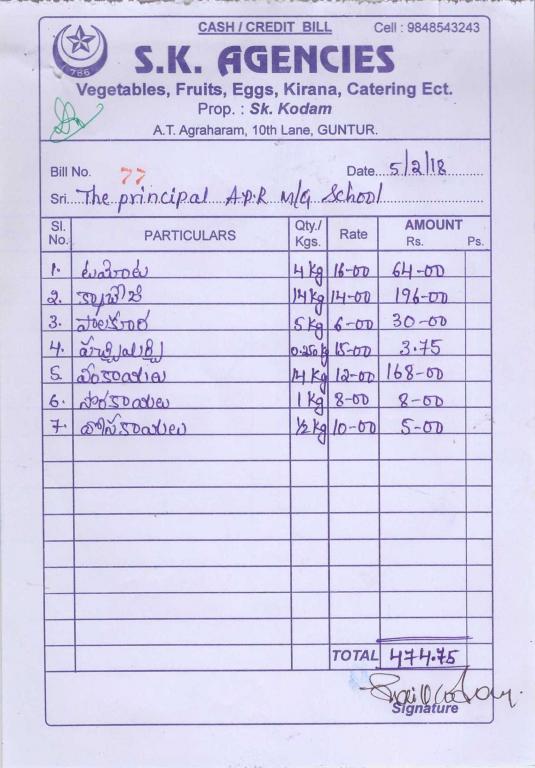 CASH / CREDIT BILL Cell : 9848543243
786
S.K. AGENCIES
Vegetables, Fruits, Eggs, Kirana, Catering Ect.
Prop. : Sk. Kodam
A.T. Agraharam, 10th Lane, GUNTUR.
Bill No. 77 Date 5/2/18
Sri. The principal A.P.R M/G School
Sl. No. PARTICULARS Qty./ Kgs. Rate AMOUNT Rs. Ps.
1. టమోటా 4 kg 16-00 64-00
2. క్యాబేజి 14 kg 14-00 196-00
3. పాలకూర 5 kg 6-00 30-00
4. పచ్చిమిర్చి 0.250 kg 15-00 3.75
5. వంకాయలు 14 kg 12-00 168-00
6. సొరకాయలు 1 kg 8-00 8-00
7. దోసకాయలు 1/2 kg 10-00 5-00
TOTAL 474.75
Signature